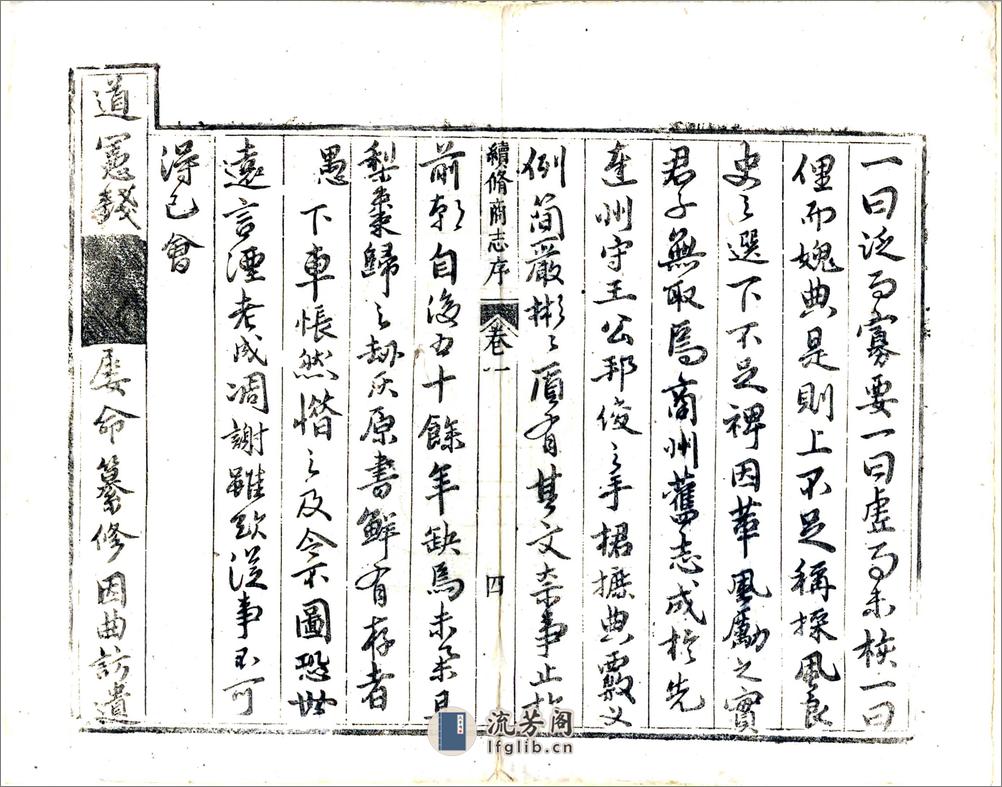 一曰泛而寡要一曰虛而未核一曰
俚而媿典是則上不足稱採風良
史之選下不足裨因革風勵之實
君子無取焉商州舊志成於先
達州守王公邦俊之手捃摭典覈义
例簡嚴彬彬質有其文奈事止於
續脩商志序 卷一 四
前朝自後五十餘年缺焉未舉且
梨棗歸之劫灰原書鮮有存者
愚下車悵然惜之及今不圖恐世
遠言湮老成凋謝雖欲從事不可
得已會
道憲錢 屡命纂修因曲訪遺
流芳阁
lfglib.cn